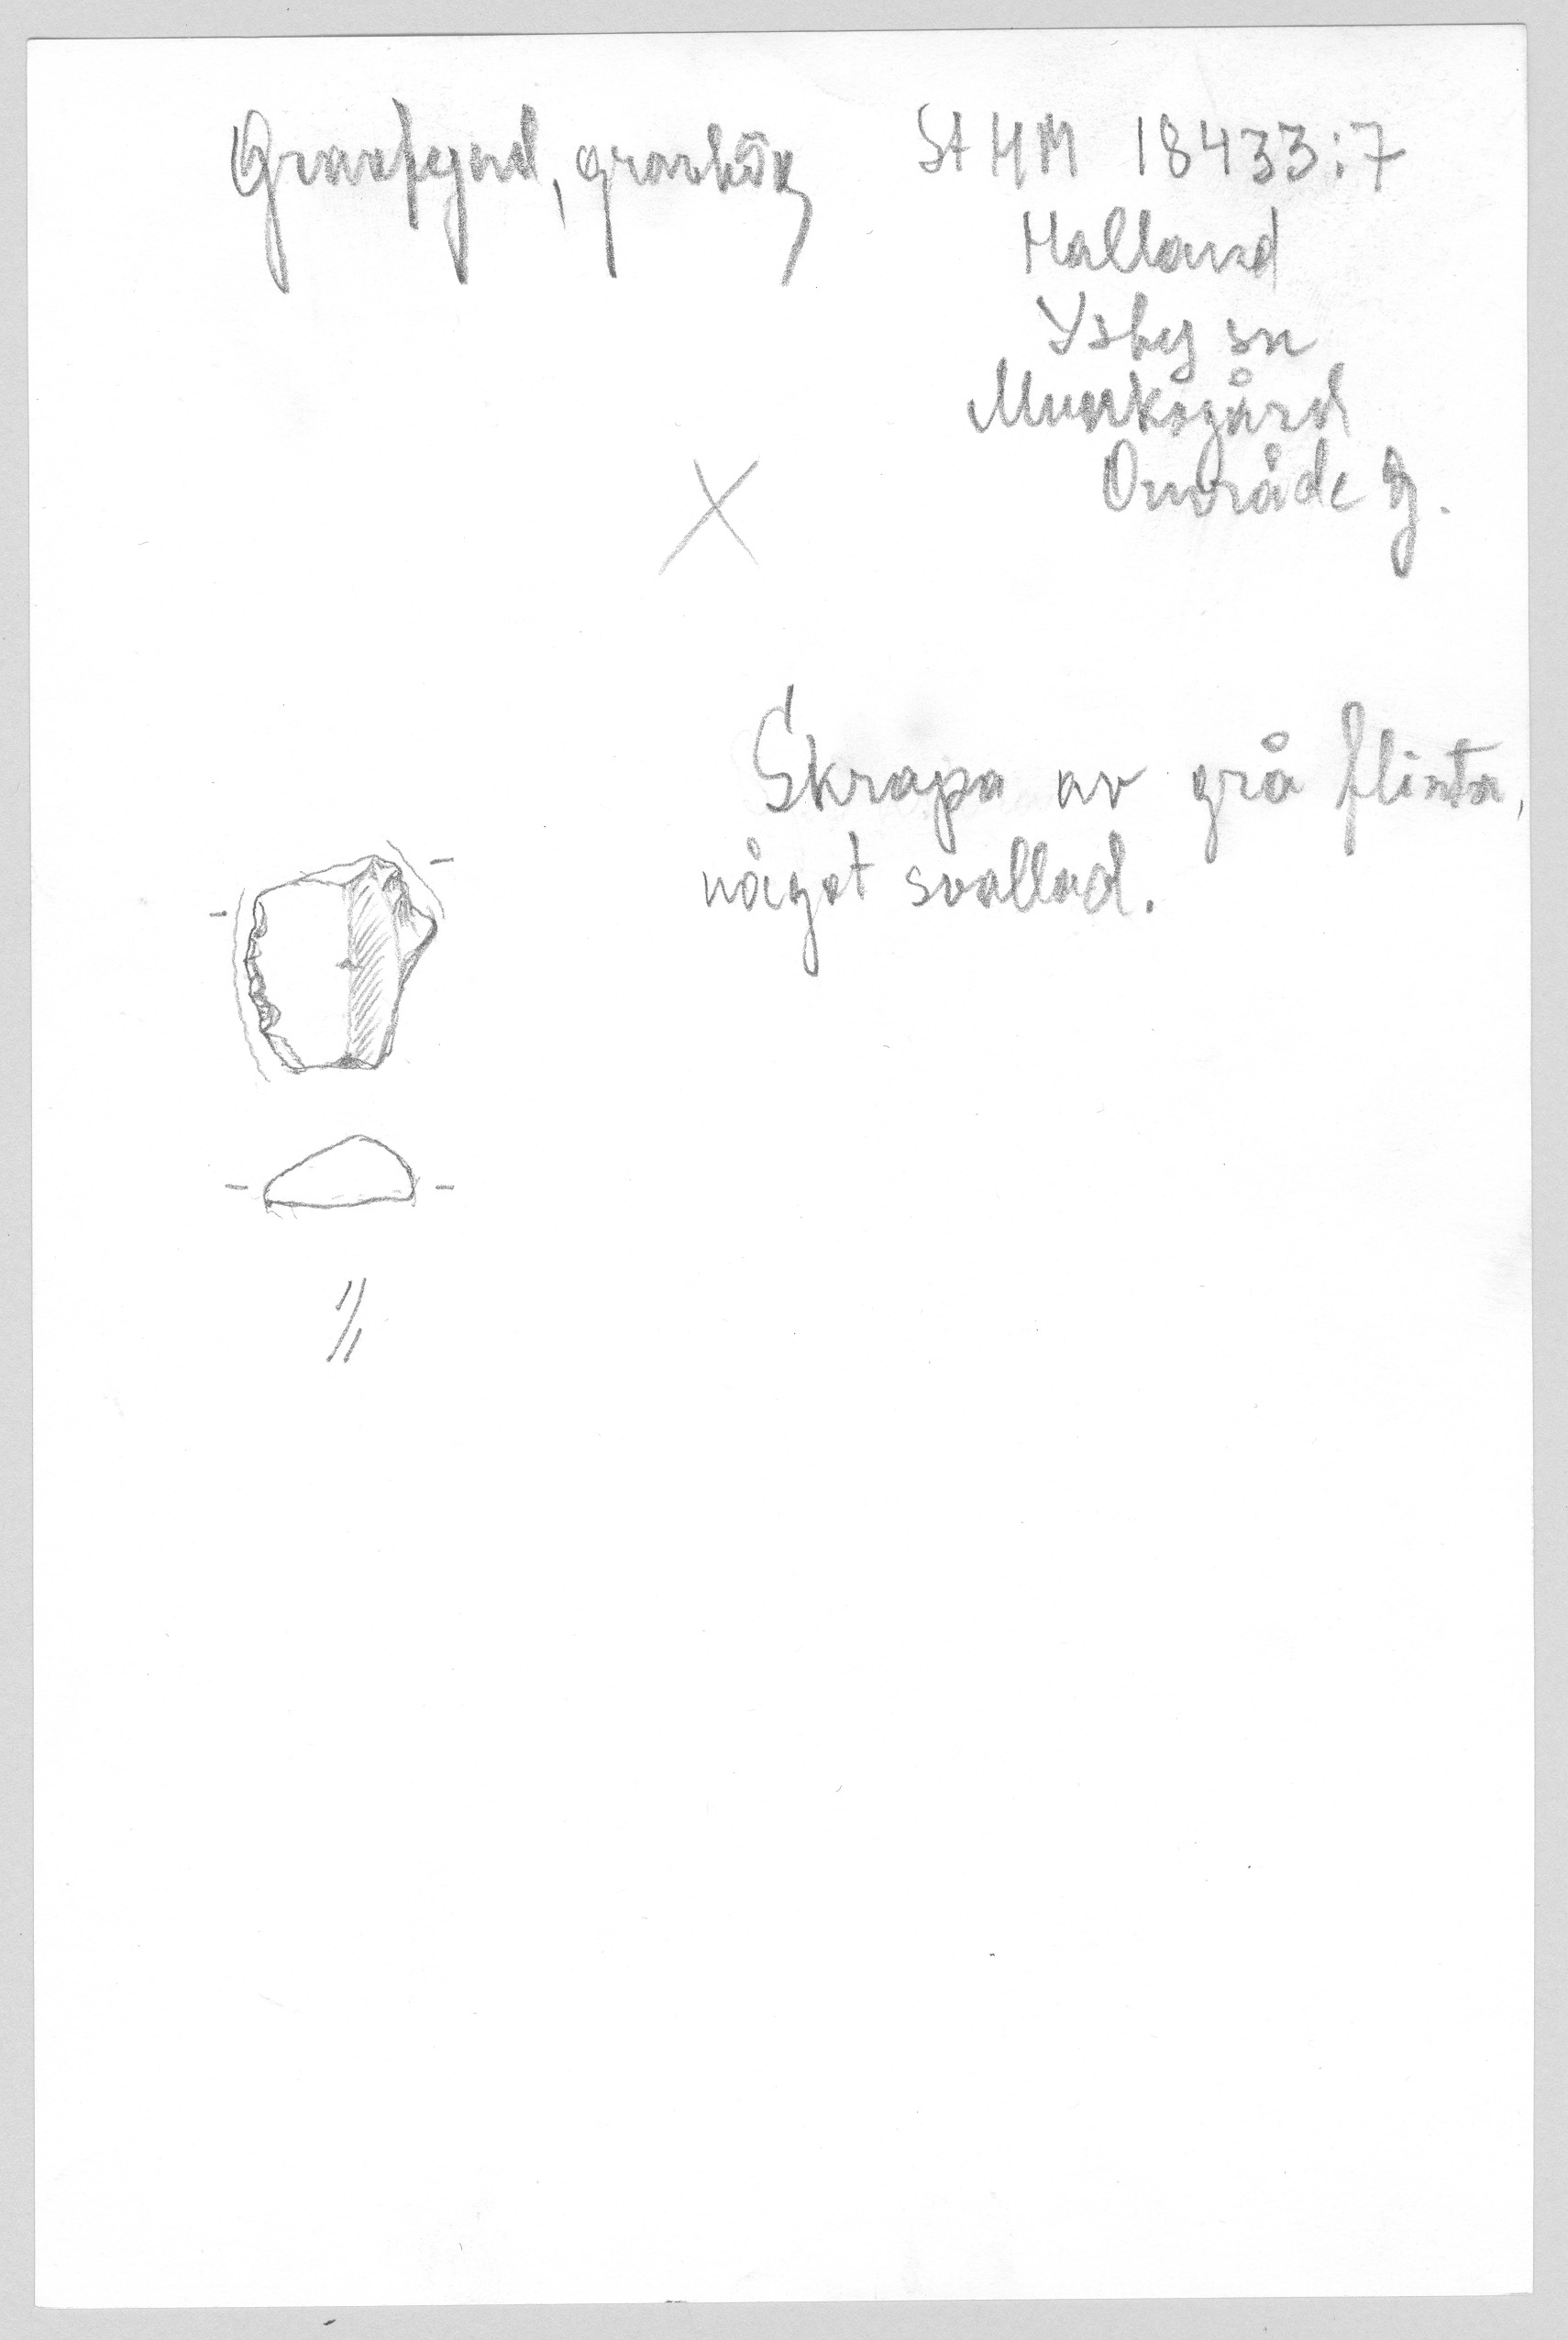 Gravfynd, gravhög
St HM 18433:7
Halland
Ysby sn
Munksgård
Område g.
Skrapa av grå flinta,
något svallad.
1/1